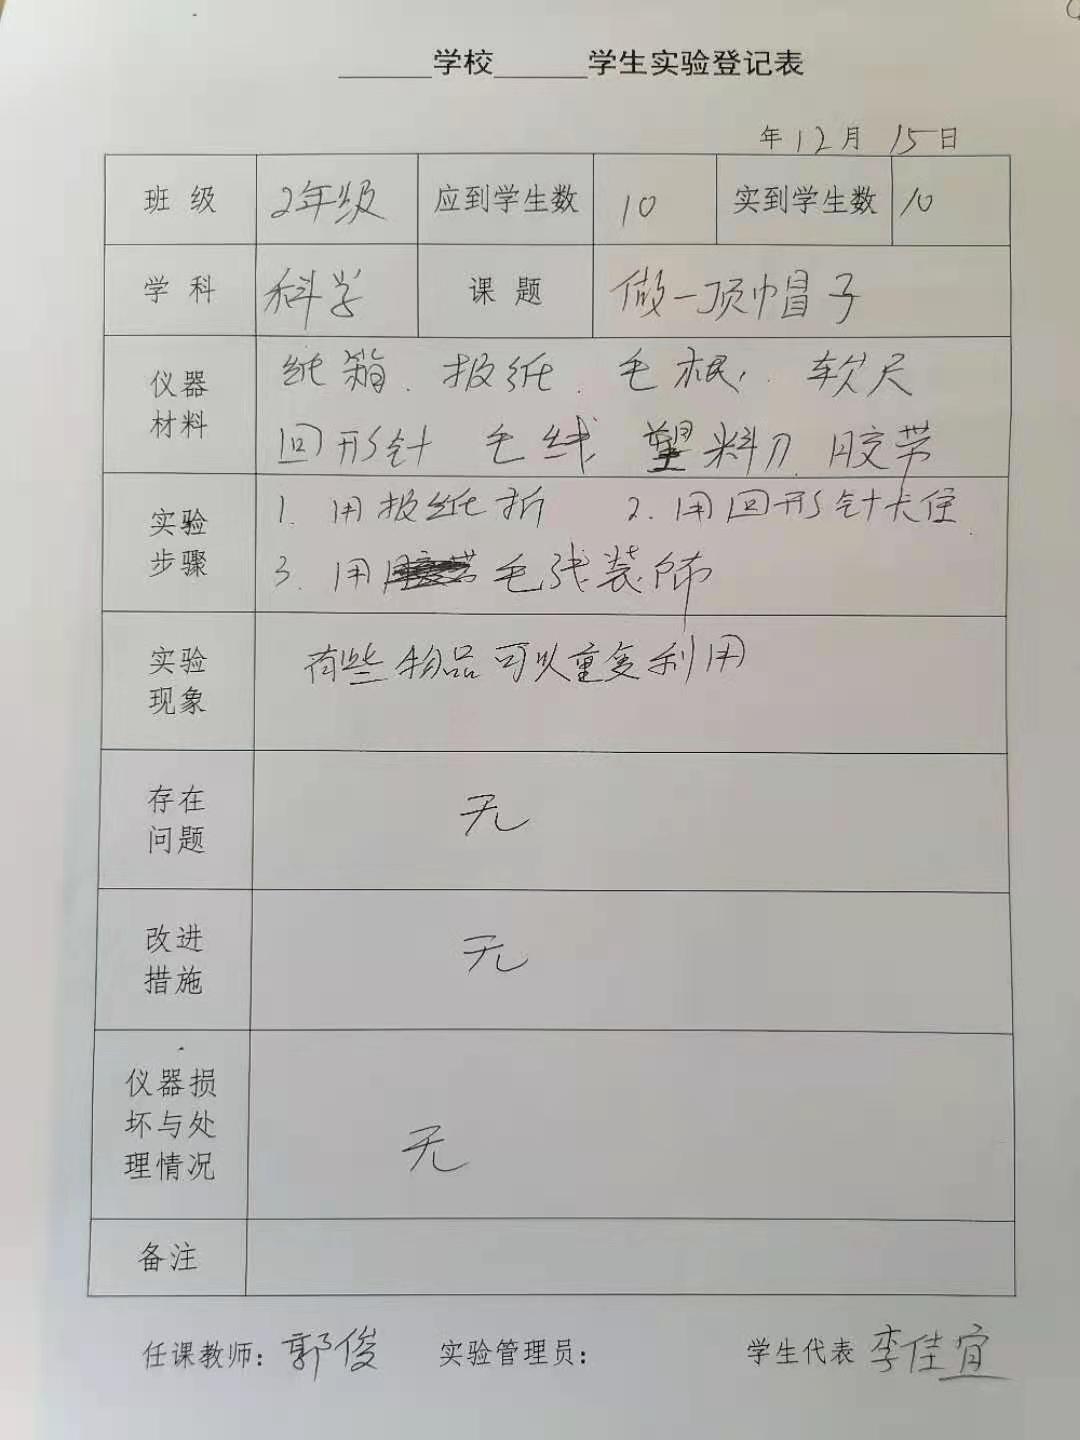 ______学校______学生实验登记表
年12月15日
班 级 2年级 应到学生数 10 实到学生数 10
学 科 科学 课 题 做一顶帽子
仪器
材料
纸箱、报纸、毛根、软尺
回形针 毛线 塑料刀、胶带
实验
步骤
1. 用报纸折 2. 用回形针卡住
3. 用毛线装饰
实验
现象
有些物品可以重复利用
存在
问题
无
改进
措施
无
仪器损
坏与处
理情况
无
备注
任课教师：郭俊 实验管理员： 学生代表 李佳宜